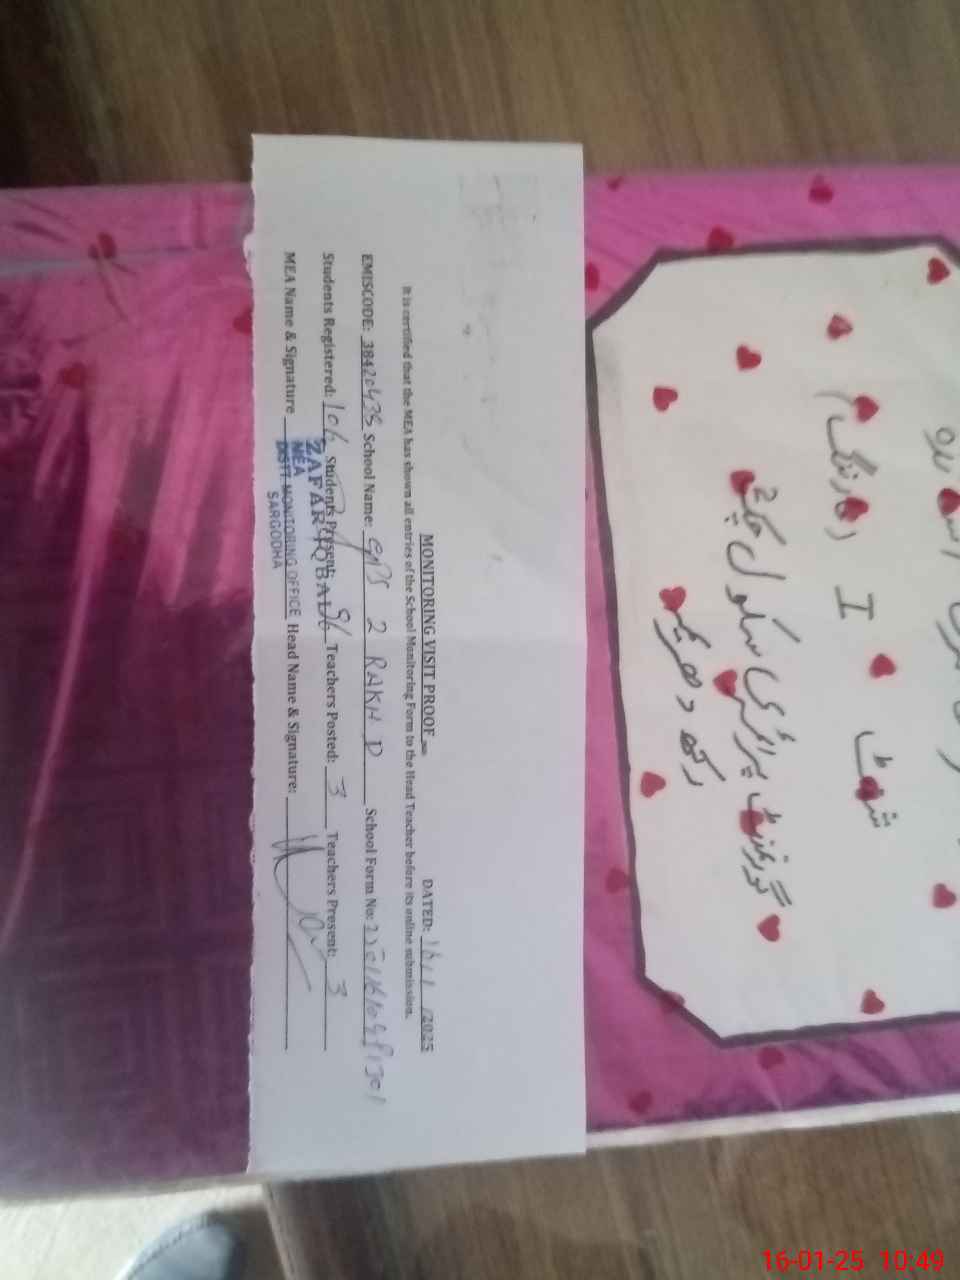 MONITORING VISIT PROOF
DATED: 16/1/2025
It is certified that the MEA has shown all entries of the School Monitoring Form to the Head Teacher before its online submission.
EMISCODE: 38420435 School Name: GPS 2 RAKH D School Form No:
Students Registered: 106 Students Present: 96 Teachers Posted: 3 Teachers Present: 3
MEA Name & Signature Head Name & Signature:
ZAFAR IQBAL
MEA
DISTT MONITORING OFFICE
SARGODHA
(مارننگ) I شفٹ
گورنمنٹ پرائمری سکول چک 2
رکھ دھریمہ
16-01-25 10:49